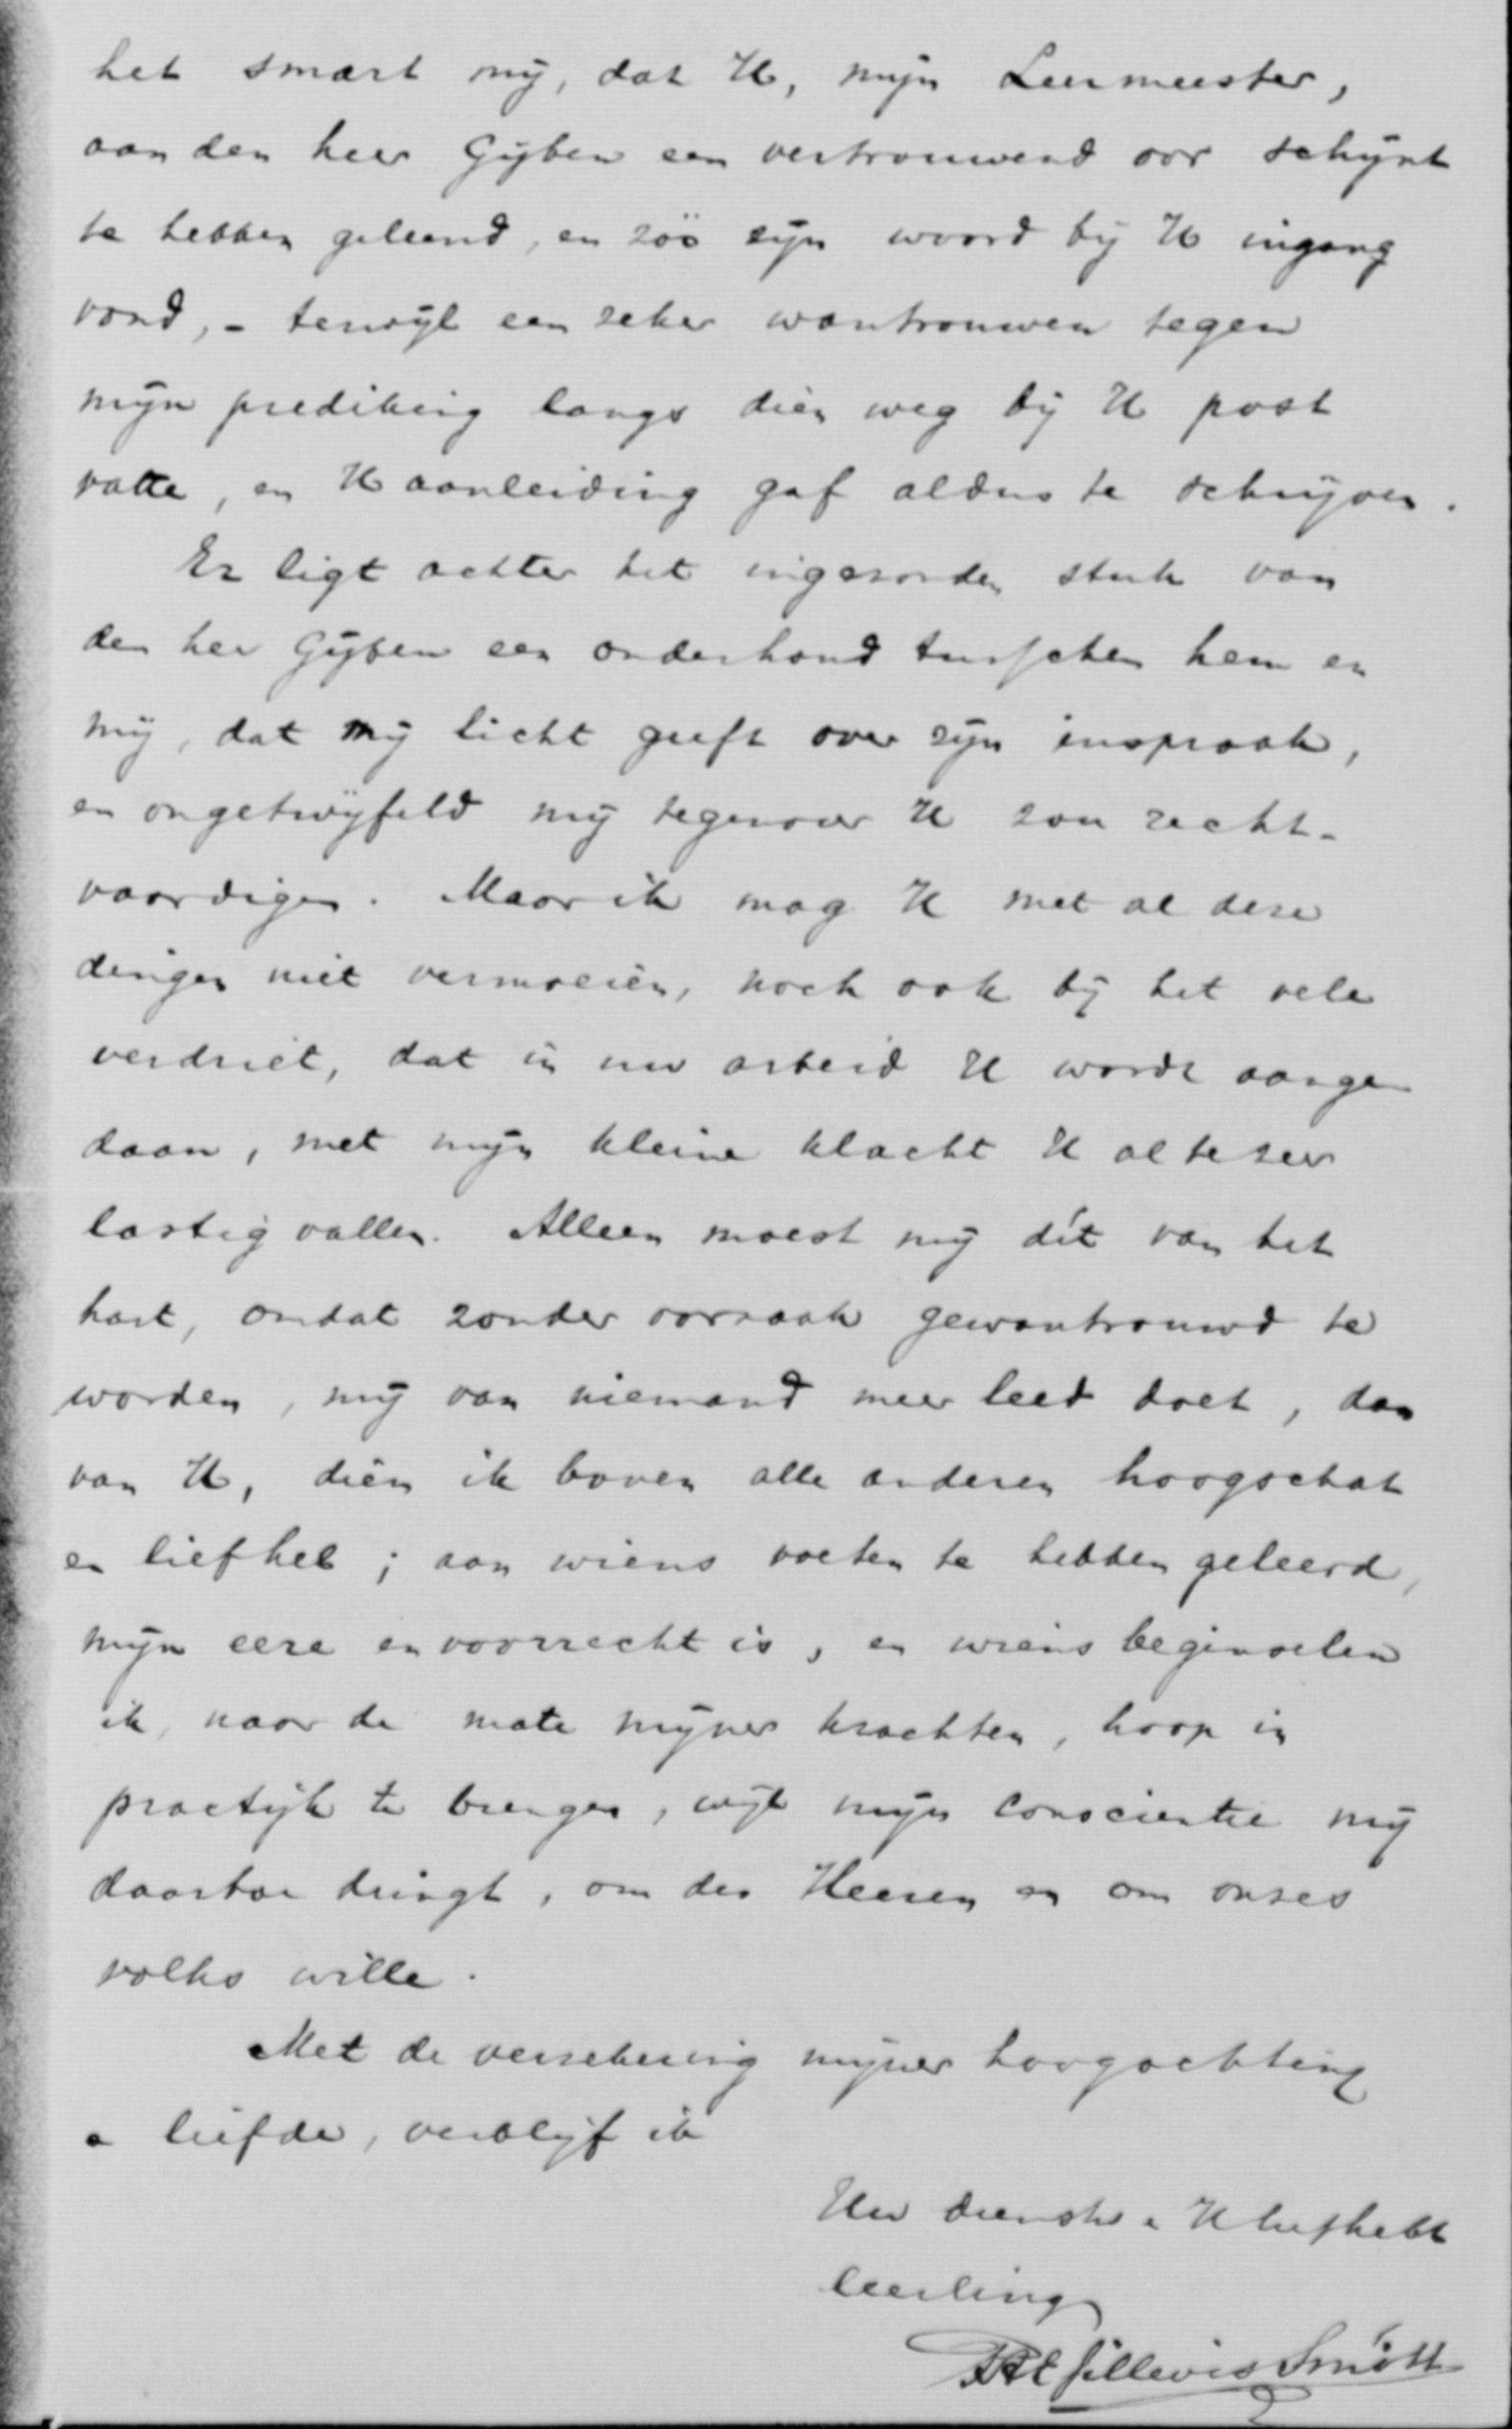 het smart mij, dat U, mijn Leermeester,
aan den heer Gijben een vertrouwend oor schijnt
te hebben geleend, en zóó zijn woord bij U ingang
vond, - terwijl een zeker wantrouwen tegen
mijn prediking langs dien weg bij U post
vatte, en U aanleiding gaf aldus te schrijven.
Er ligt achter het ingezonden stuk van
den heer Gijben een onderhoud tusschen hem en
mij, dat mij licht geeft over zijn inspraak,
en ongetwijfeld mij tegenover U zou recht-
vaardigen. Maar ik mag U met al deze
dingen niet vermoeien, noch ook bij het vele
verdriet, dat in uw arbeid U wordt aange
daan, met mijn kleine klacht U al te zeer
lastig vallen. Alleen moest mij dít van het
hart, omdat zonder oorzaak gewantrouwd te
worden, mij van niemand meer leed doet, dan
van U, dien ik boven alle anderen hoogschat
en liefheb; aan wiens voeten te hebben geleerd,
mijn eere en voorrecht is, en wiens beginselen
ik, naar de mate mijner krachten, hoop in
practijk te brengen, wijl mijn conscientie mij
daartoe dringt, om des Heeren en om onzes
volks wille.
Met de verzekering mijner hoogachting
en liefde, verblijf ik
Uw dienstw. U liefhebb
leerling
Sillevis Smitt